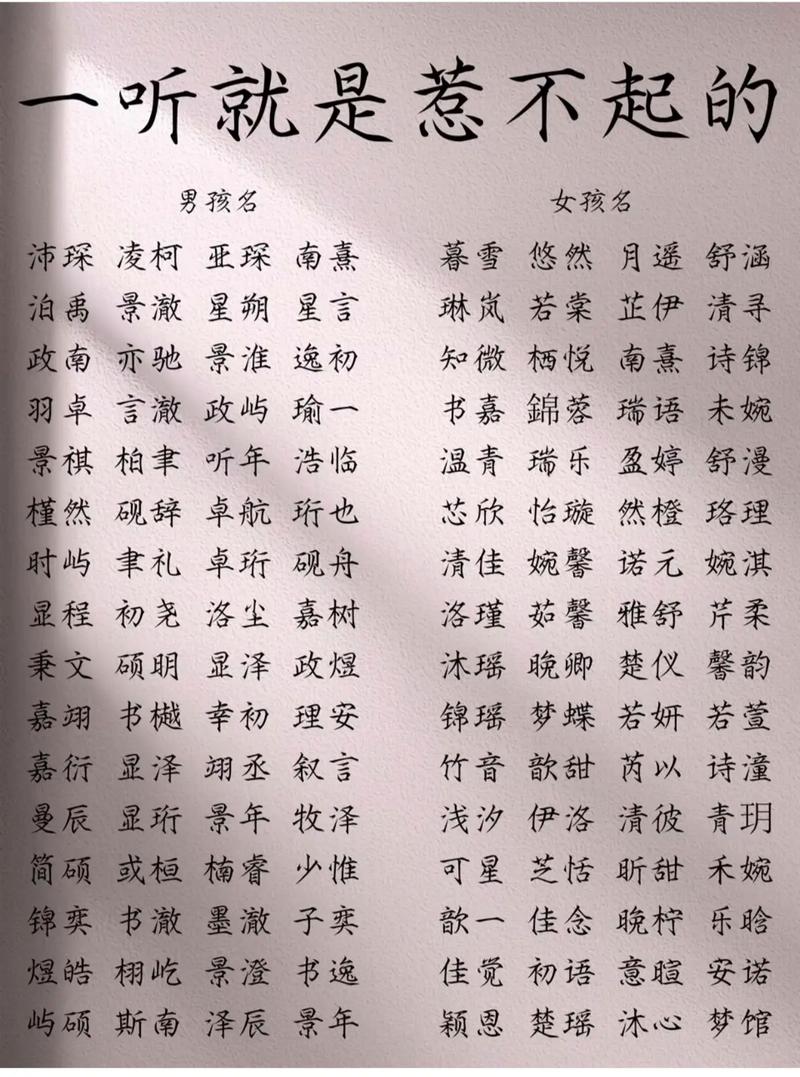 一听就是惹不起的
男孩名 女孩名
沛琛 凌柯 亚琛 南熹 暮雪 悠然 月遥 舒涵
泊禹 景澈 星朔 星言 琳岚 若棠 芷伊 清寻
政南 亦驰 景淮 逸初 知微 栖悦 南熹 诗锦
羽卓 言澈 政屿 瑜一 书嘉 錦蓉 瑞语 未婉
景祺 柏聿 听年 浩临 温青 瑞乐 盈婷 舒漫
槿然 砚辞 卓航 珩也 芯欣 怡璇 然橙 珞理
时屿 聿礼 卓珩 砚舟 清佳 婉馨 诺元 婉淇
显程 初尧 洛尘 嘉树 洛瑾 茹馨 雅舒 芹柔
秉文 硕明 显泽 政煜 沐瑶 晚卿 楚仪 馨韵
嘉翊 书樾 幸初 理安 锦瑶 梦蝶 若妍 若萱
嘉衍 显泽 翊丞 叙言 竹音 歆甜 芮以 诗潼
曼辰 显珩 景年 牧泽 浅汐 伊洛 清彼 青玥
简硕 或桓 楠睿 少惟 可星 芝恬 昕甜 禾婉
锦奕 书澈 墨澈 子奕 歆一 佳念 晚柠 乐晗
煜皓 栩屹 景澄 书逸 佳觉 初语 意暄 安诺
屿硕 斯南 泽辰 景年 颖恩 楚瑶 沐心 梦馆